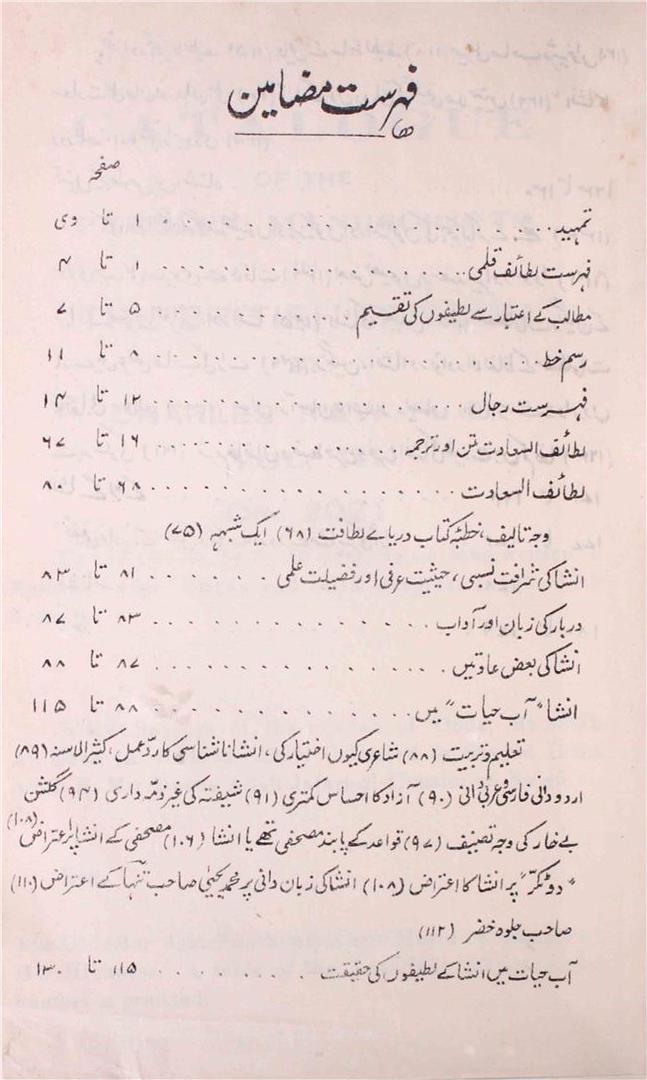 فہرست مضامین
صفحہ
تمہید . . . . . . . . . . . . ۱ تا وی
فہرست لطائف قلمی . . . . . . . . . . . . ۱ تا ۴
مطالب کے اعتبار سے لطیفوں کی تقسیم . . . . . . . . ۵ تا ۷
رسم خط . . . . . . . . . . . . ۸ تا ۱۱
فہرست رجال . . . . . . . . . . . . ۱۲ تا ۱۴
لطائف السعادت متن اور ترجمہ . . . . . . . . . . ۱۶ تا ۶۷
لطائف السعادت . . . . . . . . . . . . ۶۸ تا ۸۰
وجہ تالیف، خطبۂ کتاب دریائے لطافت (۶۸) ایک شبہہ (۷۵)
انشا کی شرافت نسبی، حیثیت عرفی اور فضیلت علمی . . . . . . ۸۱ تا ۸۳
دربار کی زبان اور آداب . . . . . . . . . . . . ۸۳ تا ۸۷
انشا کی بعض عادتیں . . . . . . . . . . . . ۸۷ تا ۸۸
انشا "آب حیات" میں . . . . . . . . . . . . ۸۸ تا ۱۱۵
تعلیم و تربیت (۸۸) شاعری کیوں اختیار کی، انشا ناشناسی کا ردّ عمل، کثیر الالسنہ (۸۹)
اردو دانی فارسی و عربی دانی (۹۰) آزاد کا احساس کمتری (۹۱) شیفتہ کی غیر ذمہ داری (۹۴) گلشن
بے خار کی وجہ تصنیف (۹۷) قواعد کے پابند مصحفی تھے یا انشا (۱۰۶) مصحفی کے انشا پر اعتراض (۱۰۸)
"دوٹکڑ" پر انشا کا اعتراض (۱۰۸) انشا کی زبان دانی پر محمد یحییٰ صاحب تنہا کے اعتراض (۱۱۰)
صاحب جلوہ خضر (۱۱۲)
آب حیات میں انشا کے لطیفوں کی حقیقت . . . . . . . . . . ۱۱۵ تا ۱۳۰